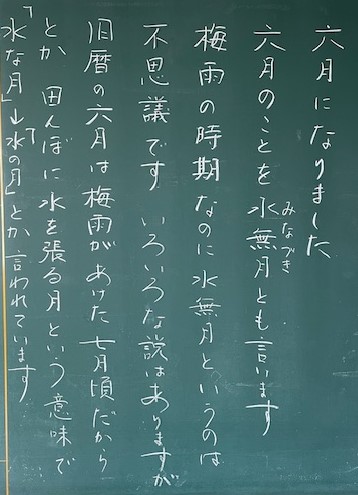 六月になりました
六月のことを水無月とも言います
みなづき
梅雨の時期なのに水無月というのは
不思議です いろいろな説はありますが
旧暦の六月は梅雨があけた七月頃だから
とか 田んぼに水を張る月という意味で
「水な月」→「水の月」とか言われています